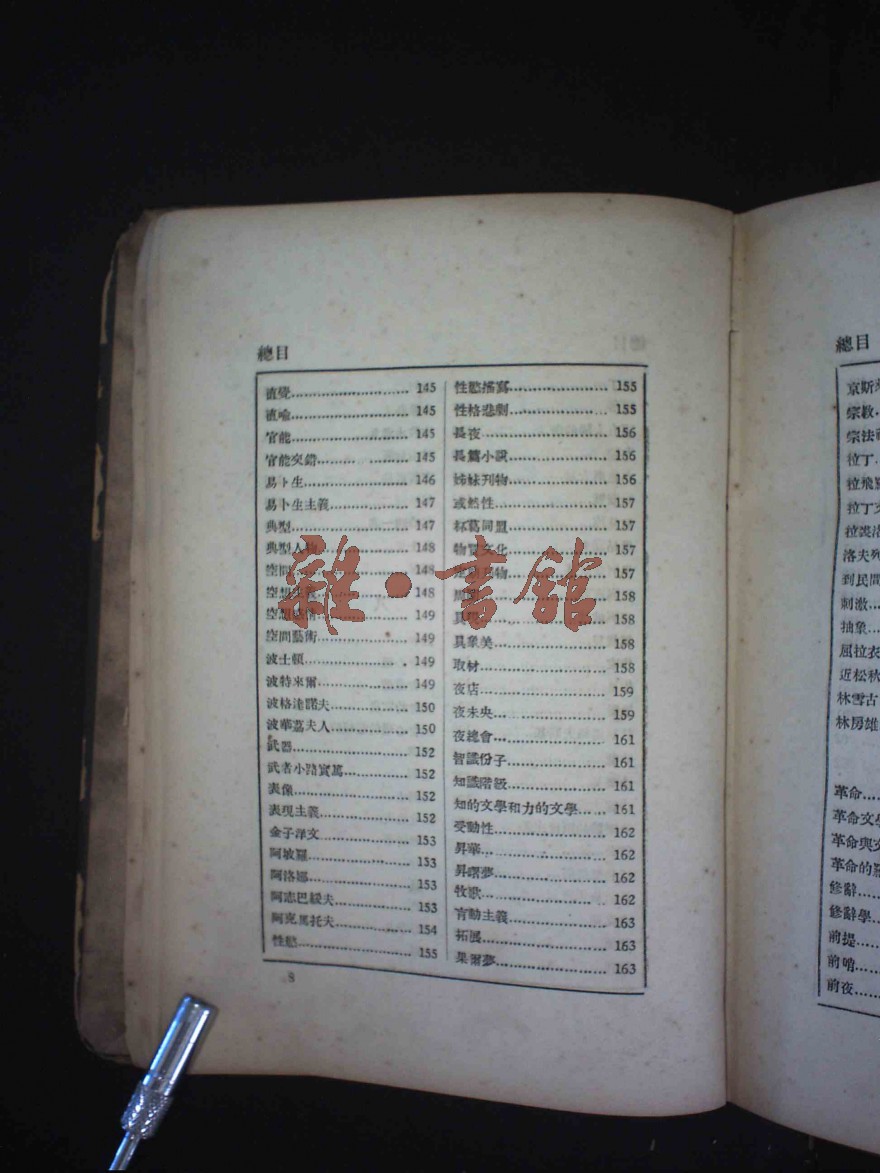 總目
直覺 145
直喻 145
官能 145
官能交錯 145
易卜生 146
易卜生主義 147
典型 147
典型人物 148
空間 148
空想主義 148
149
空間藝術 149
波士頓 149
波特來爾 149
波格達諾夫 150
波華荔夫人 150
武器 152
武者小路實篤 152
表像 152
表現主義 152
金子洋文 153
阿坡羅 153
阿洛娜 153
阿志巴綏夫 153
阿克馬托夫 154
性慾 155
性慾描寫 155
性格悲劇 155
長夜 156
長篇小說 156
姊妹刊物 156
或然性 157
杯葛同盟 157
物質文化 157
157
158
具象 158
具象美 158
取材 158
夜店 159
夜未央 159
夜總會 161
智識份子 161
知識階級 161
知的文學和力的文學 161
受動性 162
昇華 162
昇曙夢 162
牧歌 162
盲動主義 163
拓展 163
果爾夢 163
8
雜·書館
總目
宗教
拉丁
到民間
刺激
抽象
屈拉衣
近松秋
林雪古
林房雄
革命
革命文學
革命與文
革命的羅
修辭
修辭學
前提
前哨
前夜